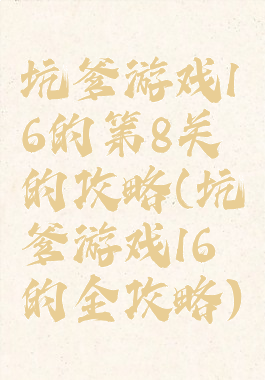 坑爹游戏1
6的第8关
的攻略(坑
爹游戏16
的全攻略)